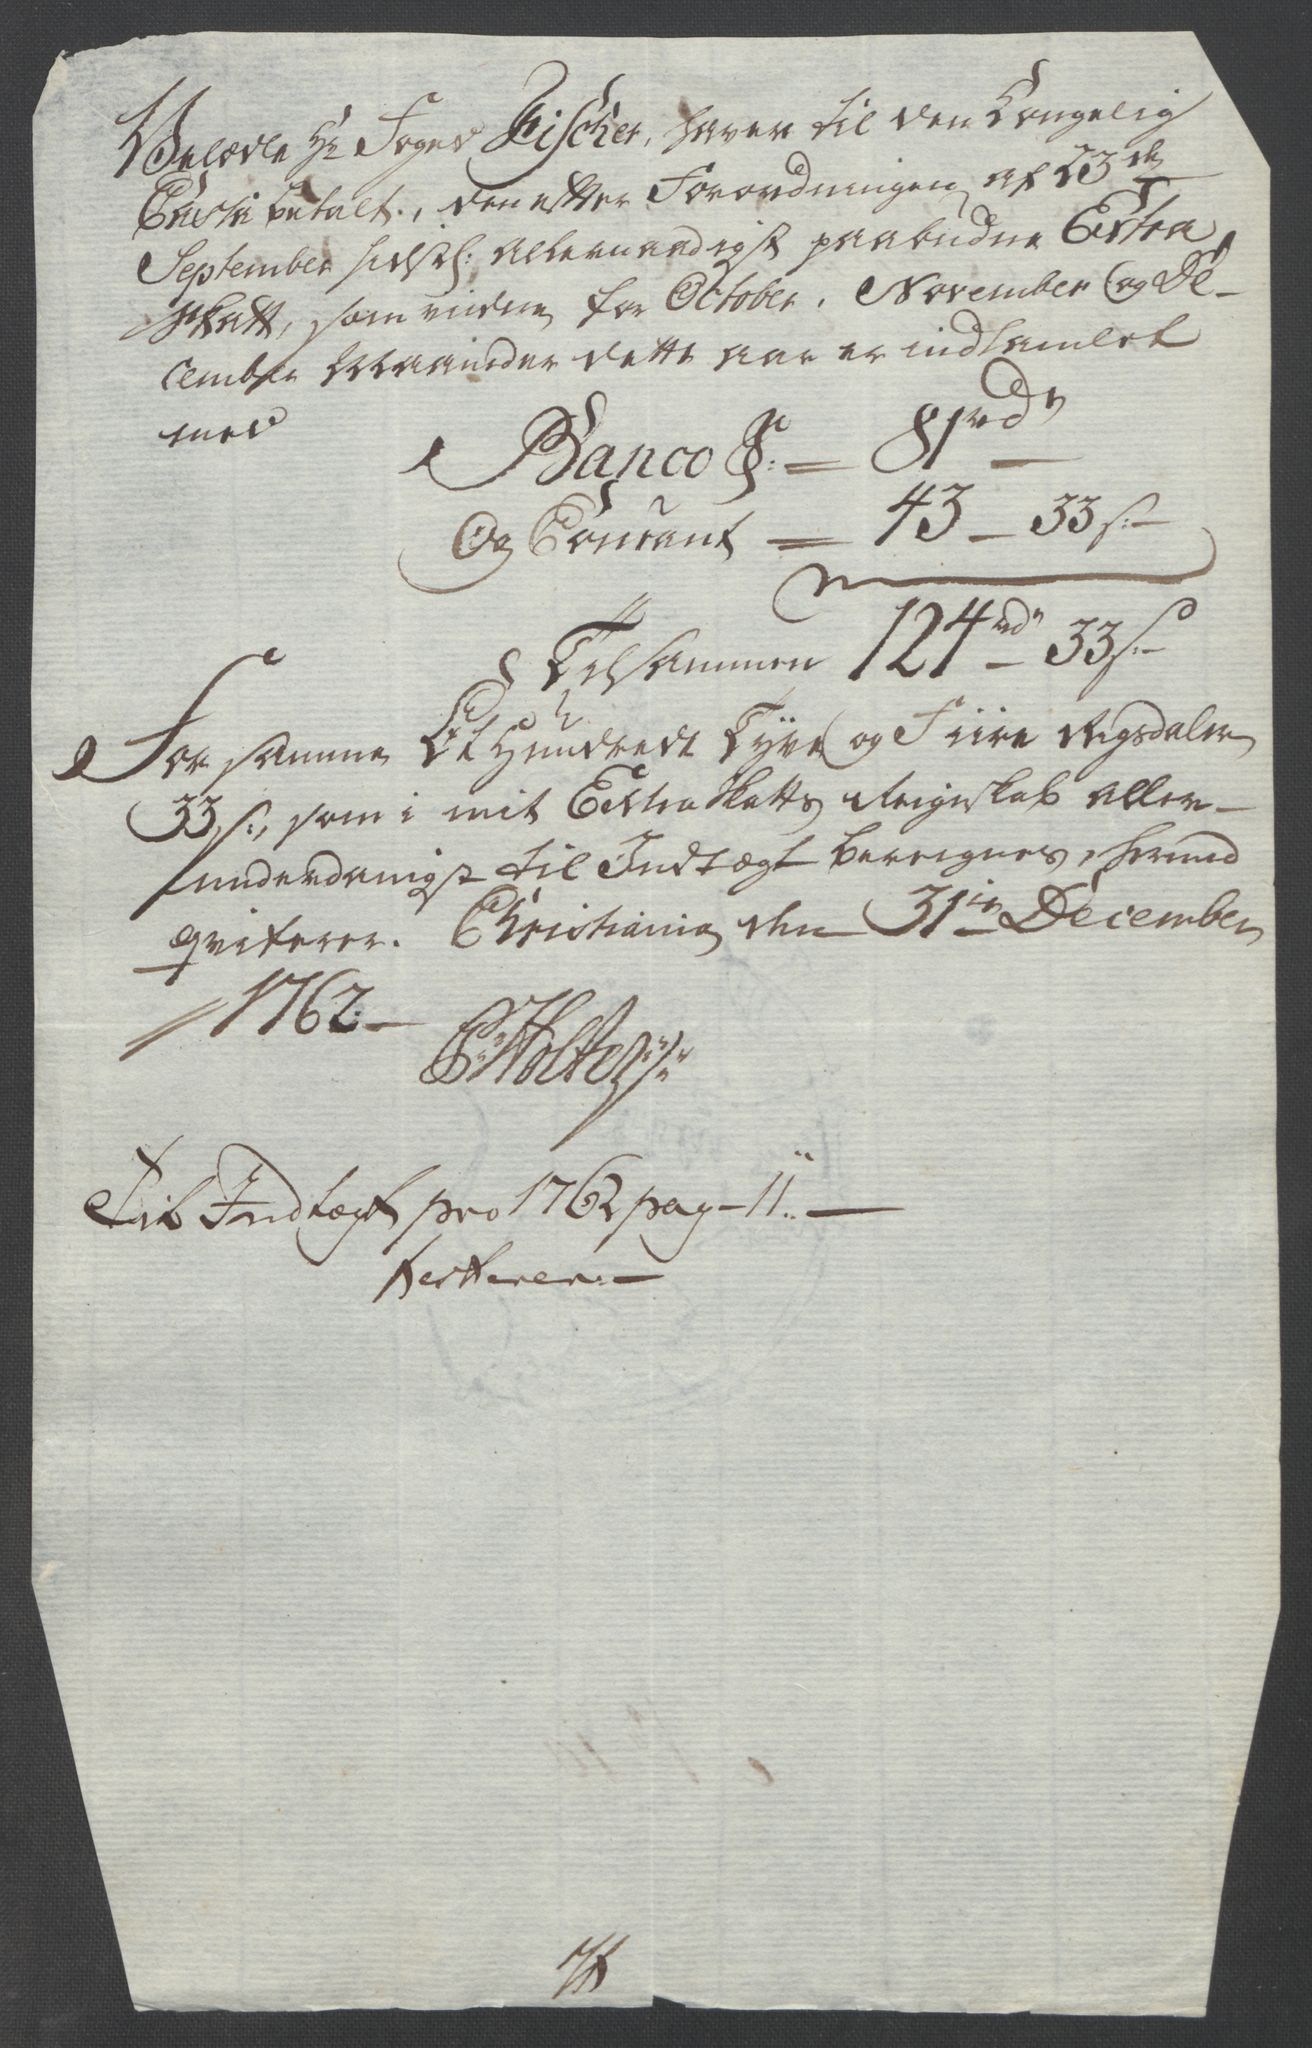 Velædle Hr Foged Fischer, haver til den Kongelig
Cassa betalt, den efter Forordningen af 23de
September sidstl: allernaadigst paabudne Extra
Skatt, som endnu for October, November og De-
cember Maaneder dette aar er indsamlet
med
Banco S:= 81rdr
Og Courant = 43 - 33 s:
Tilsammen 124rdr 33 s:
For samme Et Hundrede Tyve og Fiire Rigsdaler
33 s:, som i mit Extra Skatts Reigenskab aller-
underdanigst til Indtægt bereignes, herved
qviterer. Christiania den 31te December
1762.
E: Holter
Til Indtægt pro 1762 pag-11.